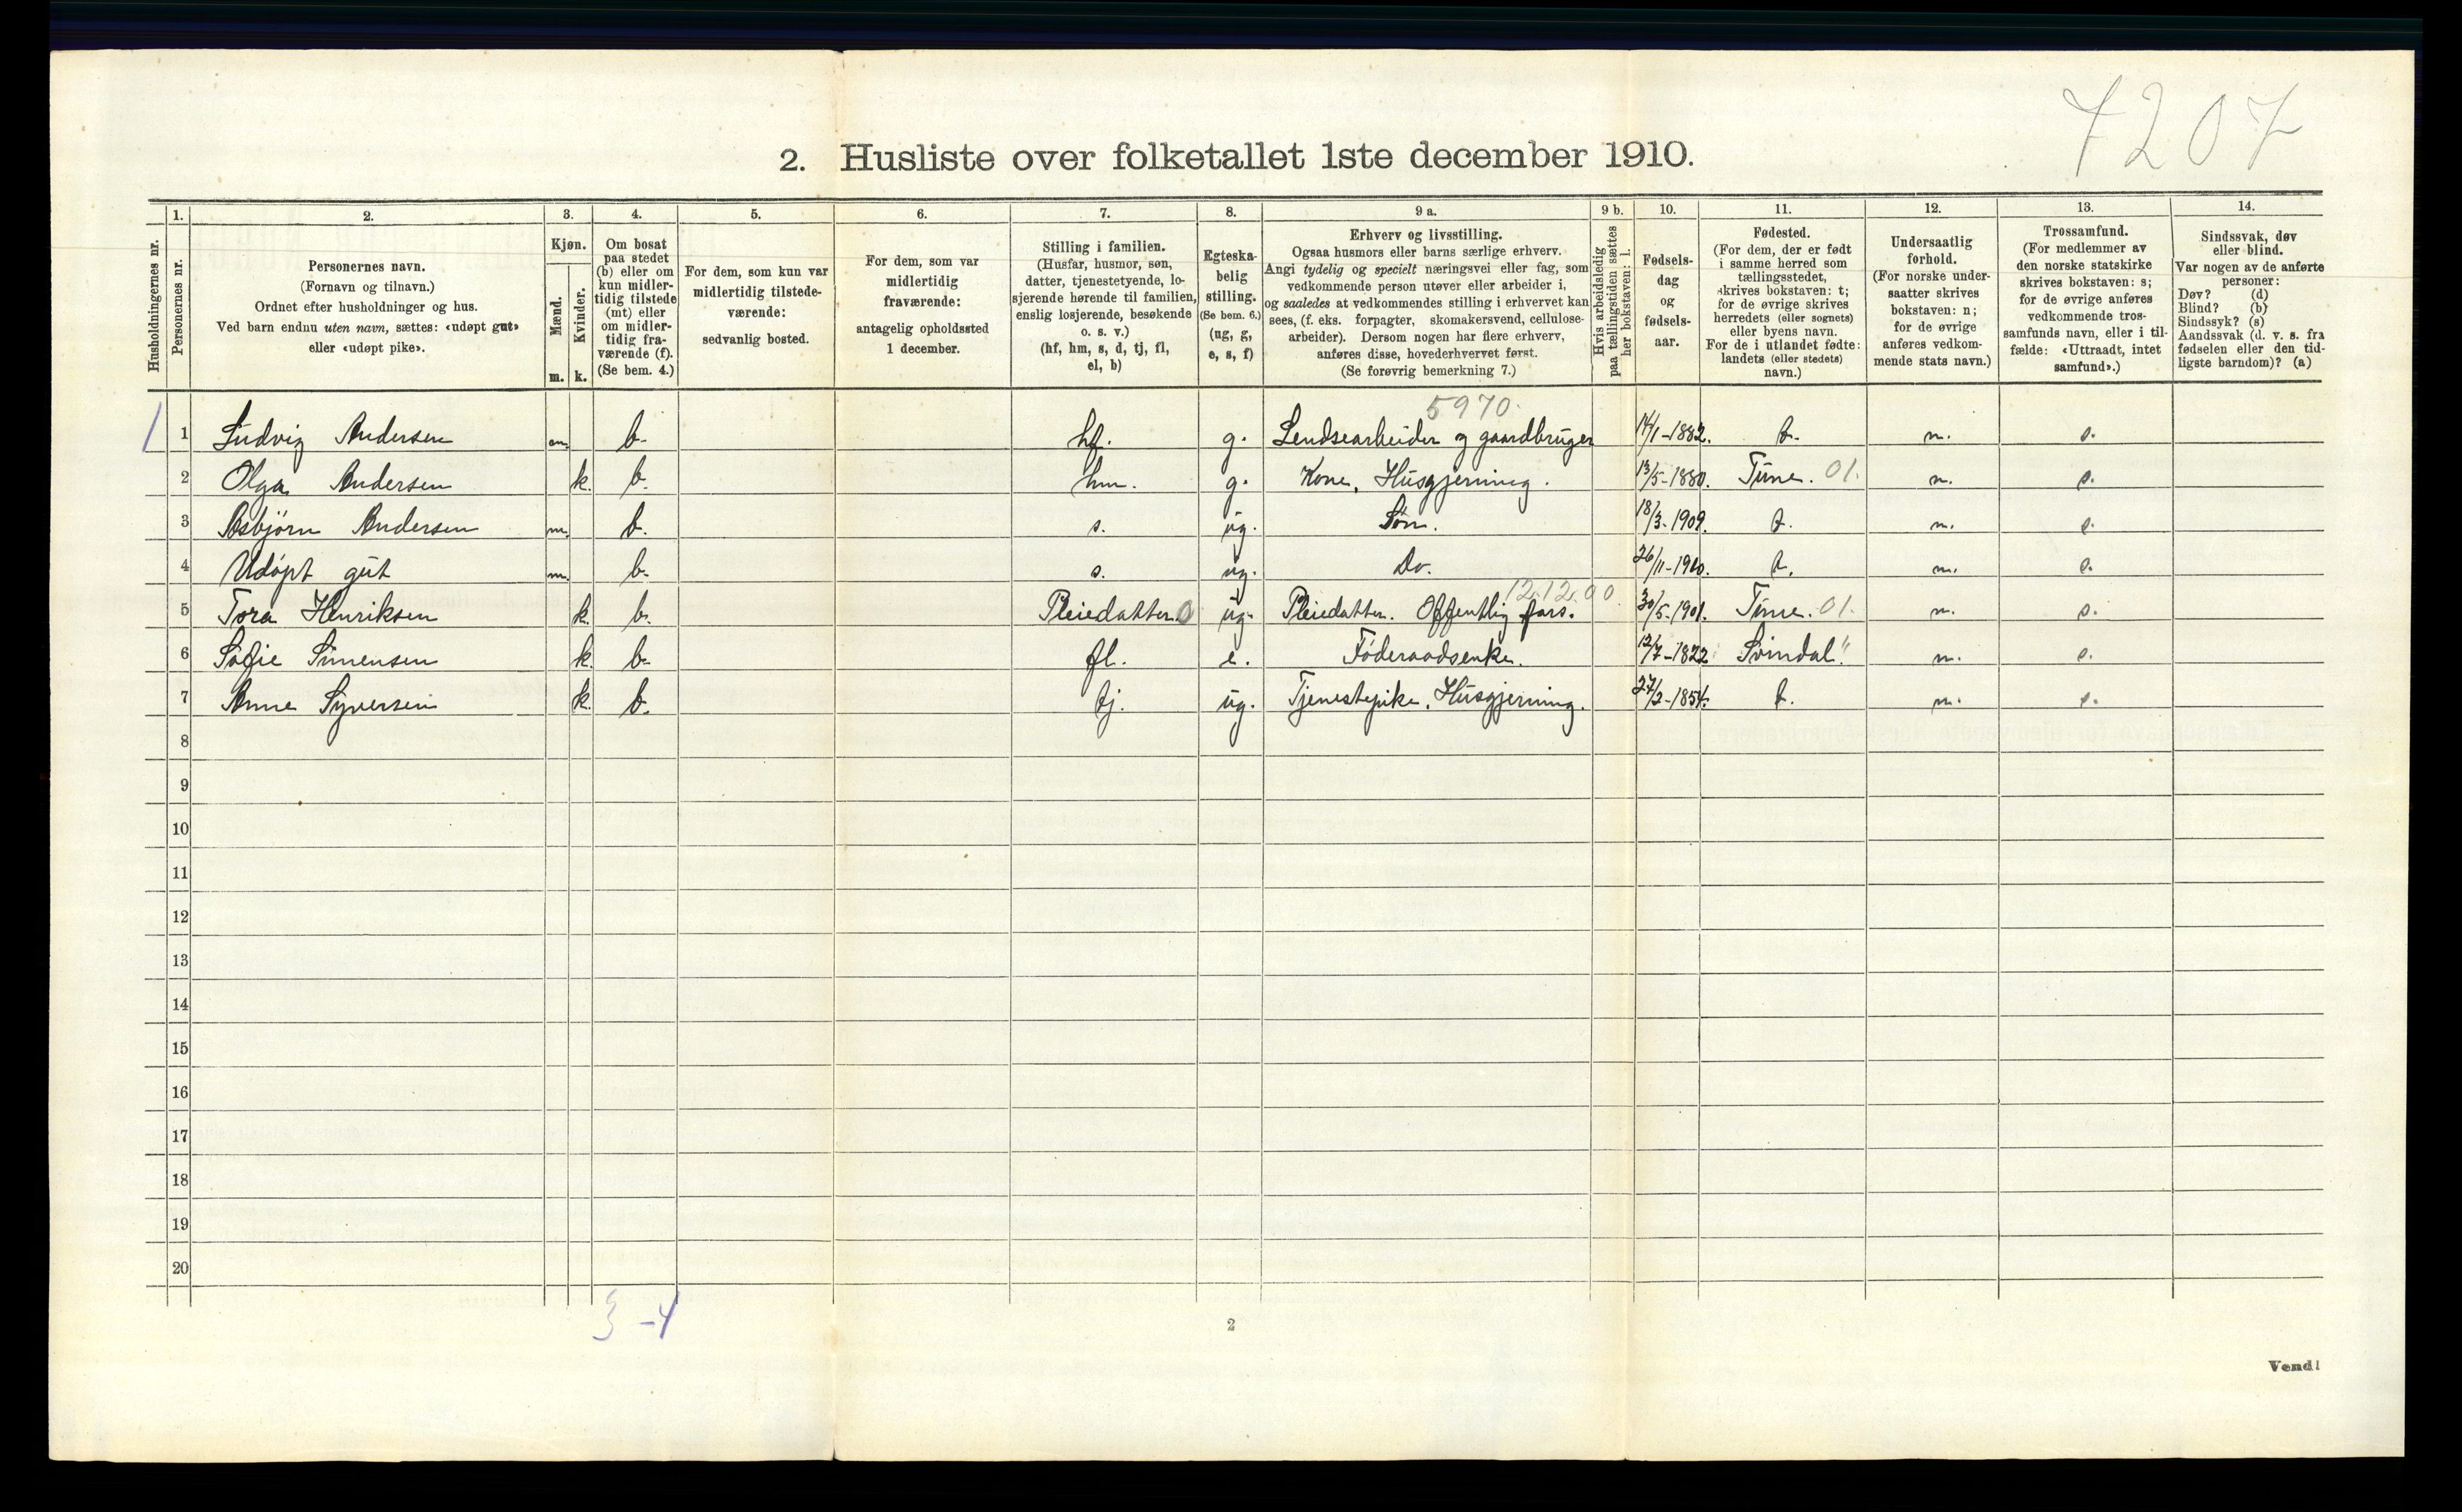 7207
2. Husliste over folketallet 1ste december 1910.
1. 2. 3. 4. 5. 6. 7. 8. 9 a. 9 b. 10. 11. 12. 13. 14.
Husholdningernes nr.
Personernes nr.
Personernes navn.
(Fornavn og tilnavn.)
Ordnet efter husholdninger og hus.
Ved barn endnu uten navn, sættes: «udøpt gut»
eller «udøpt pike».
Kjøn.
Mænd.
Kvinder.
m. k.
Om bosat
paa stedet
(b) eller om
kun midler-
tidig tilstede
(mt) eller
om midler-
tidig fra-
værende (f).
(Se bem. 4.)
For dem, som kun var
midlertidig tilstede-
værende:
sedvanlig bosted.
For dem, som var
midlertidig
fraværende:
antagelig opholdssted
1 december.
Stilling i familien.
(Husfar, husmor, søn,
datter, tjenestetyende, lo-
sjerende hørende til familien,
enslig losjerende, besøkende
o. s. v.)
(hf, hm, s, d, tj, fl,
el, b)
Egteska-
belig
stilling.
(Se bem. 6.)
(ug, g,
e, s, f)
Erhverv og livsstilling.
Ogsaa husmors eller barns særlige erhverv.
Angi tydelig og specielt næringsvei eller fag, som
vedkommende person utøver eller arbeider i,
og saaledes at vedkommendes stilling i erhvervet kan
sees, (f. eks. forpagter, skomakersvend, cellulose-
arbeider). Dersom nogen har flere erhverv,
anføres disse, hovederhvervet først.
(Se forøvrig bemerkning 7.)
Hvis arbeidsledig
paa tællingstiden sættes
her bokstaven: l.
Fødsels-
dag
og
fødsels-
aar.
Fødested.
(For dem, der er født
i samme herred som
tællingsstedet,
skrives bokstaven: t;
for de øvrige skrives
herredets (eller sognets)
eller byens navn.
For de i utlandet fødte:
landets (eller stedets)
navn.)
Undersaatlig
forhold.
(For norske under-
saatter skrives
bokstaven: n;
for de øvrige
anføres vedkom-
mende stats navn.)
Trossamfund.
(For medlemmer av
den norske statskirke
skrives bokstaven: s;
for de øvrige anføres
vedkommende tros-
samfunds navn, eller i til-
fælde: «Uttraadt, intet
samfund».)
Sindssvak, døv
eller blind.
Var nogen av de anførte
personer:
Døv? (d)
Blind? (b)
Sindssyk? (s)
Aandssvak (d. v. s. fra
fødselen eller den tid-
ligste barndom)? (a)
5970.
1 1 Ludvig Andersen m. b. hf. g. Lendsearbeider og gaardbruger 14/1-1882. t. n. s.
2 Olga Andersen k. b. hm. g. Kone, Husgjerning. 13/5-1880. Tune. 01. n. s.
3 Asbjörn Andersen m. b. s. ug. Sön. 18/3-1909. t. n. s.
4 Udöpt gut m. b. s. ug. Do. 26/11-1910. t. n. s.
12.12.00
5 Tora Henriksen k. b. Pleiedatter 0 ug. Pleiedatter. Offentlig fors. 30/5-1901. Tune. 01. n. s.
6 Sofie Simensen k. b. fl. e. Föderaadsenke. 12/7-1822 Svindal " n. s.
7 Anne Syversen k. b. tj. ug. Tjenestepike. Husgjerning. 27/2-1854. t. n. s.
8
9
10
11
12
13
14
15
16
17
18
19
20
3-4
2
Vend!